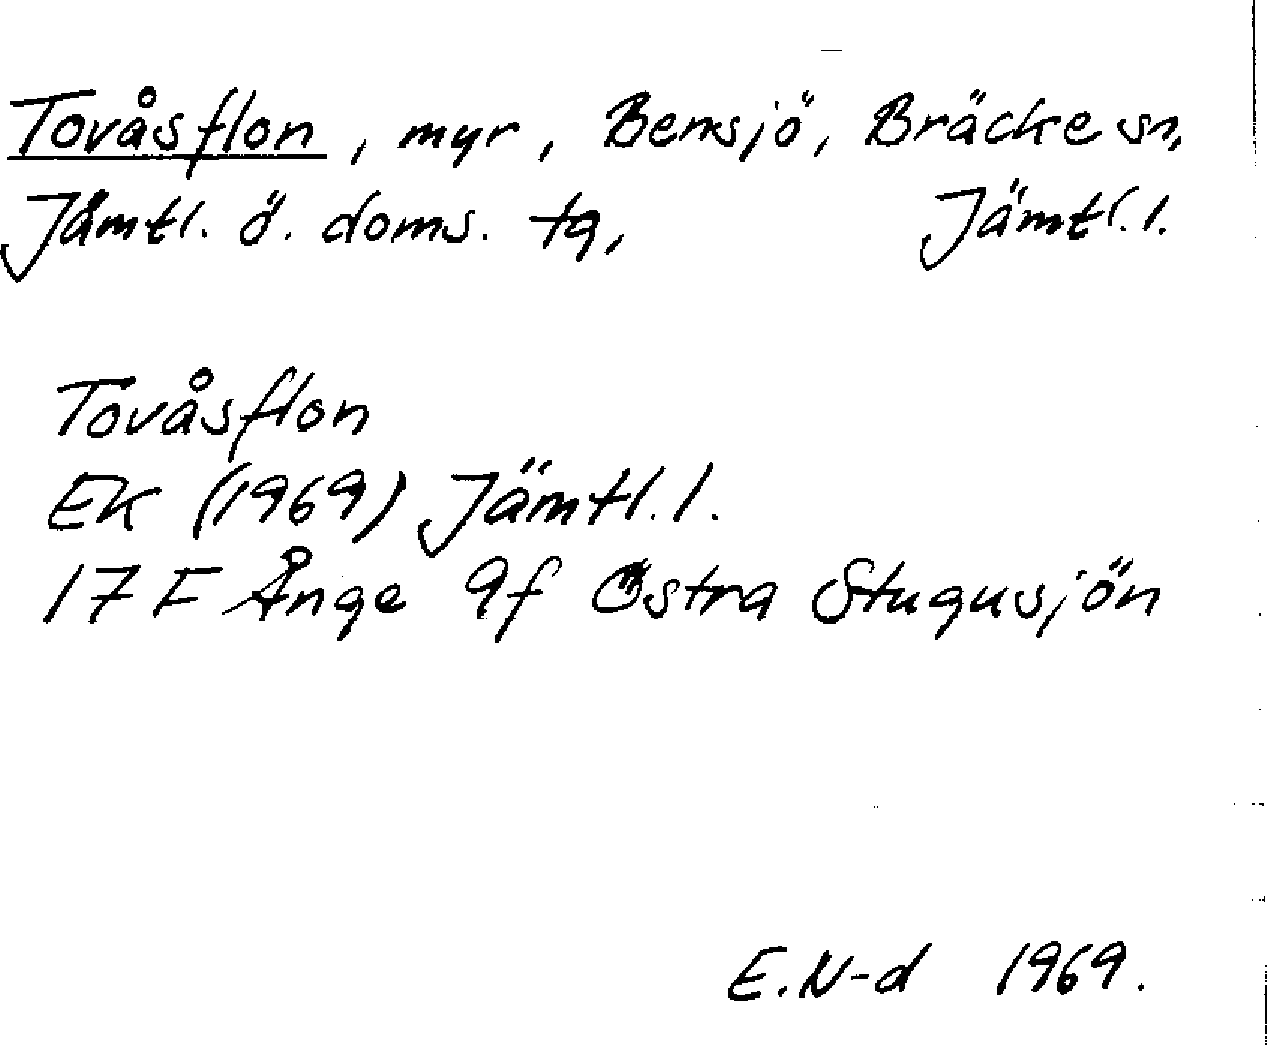 Tovåsflon, myr, Bensjö, Bräcke sn,
Jämtl. ö. doms. tg, Jämtl. l.
Tovåsflon
EK (1969) Jämtl. l.
17 F Ånge 9f Östra Stugusjön
E.N-d 1969.